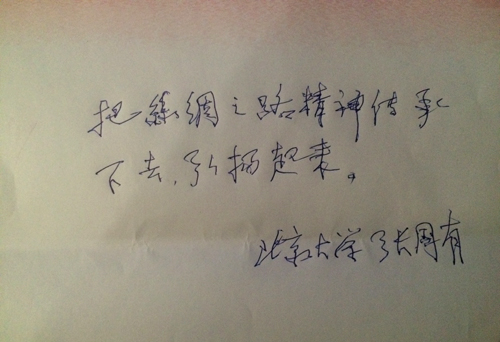 把絲綢之路精神传承
下去，弘扬起来。
北京大学 张国有